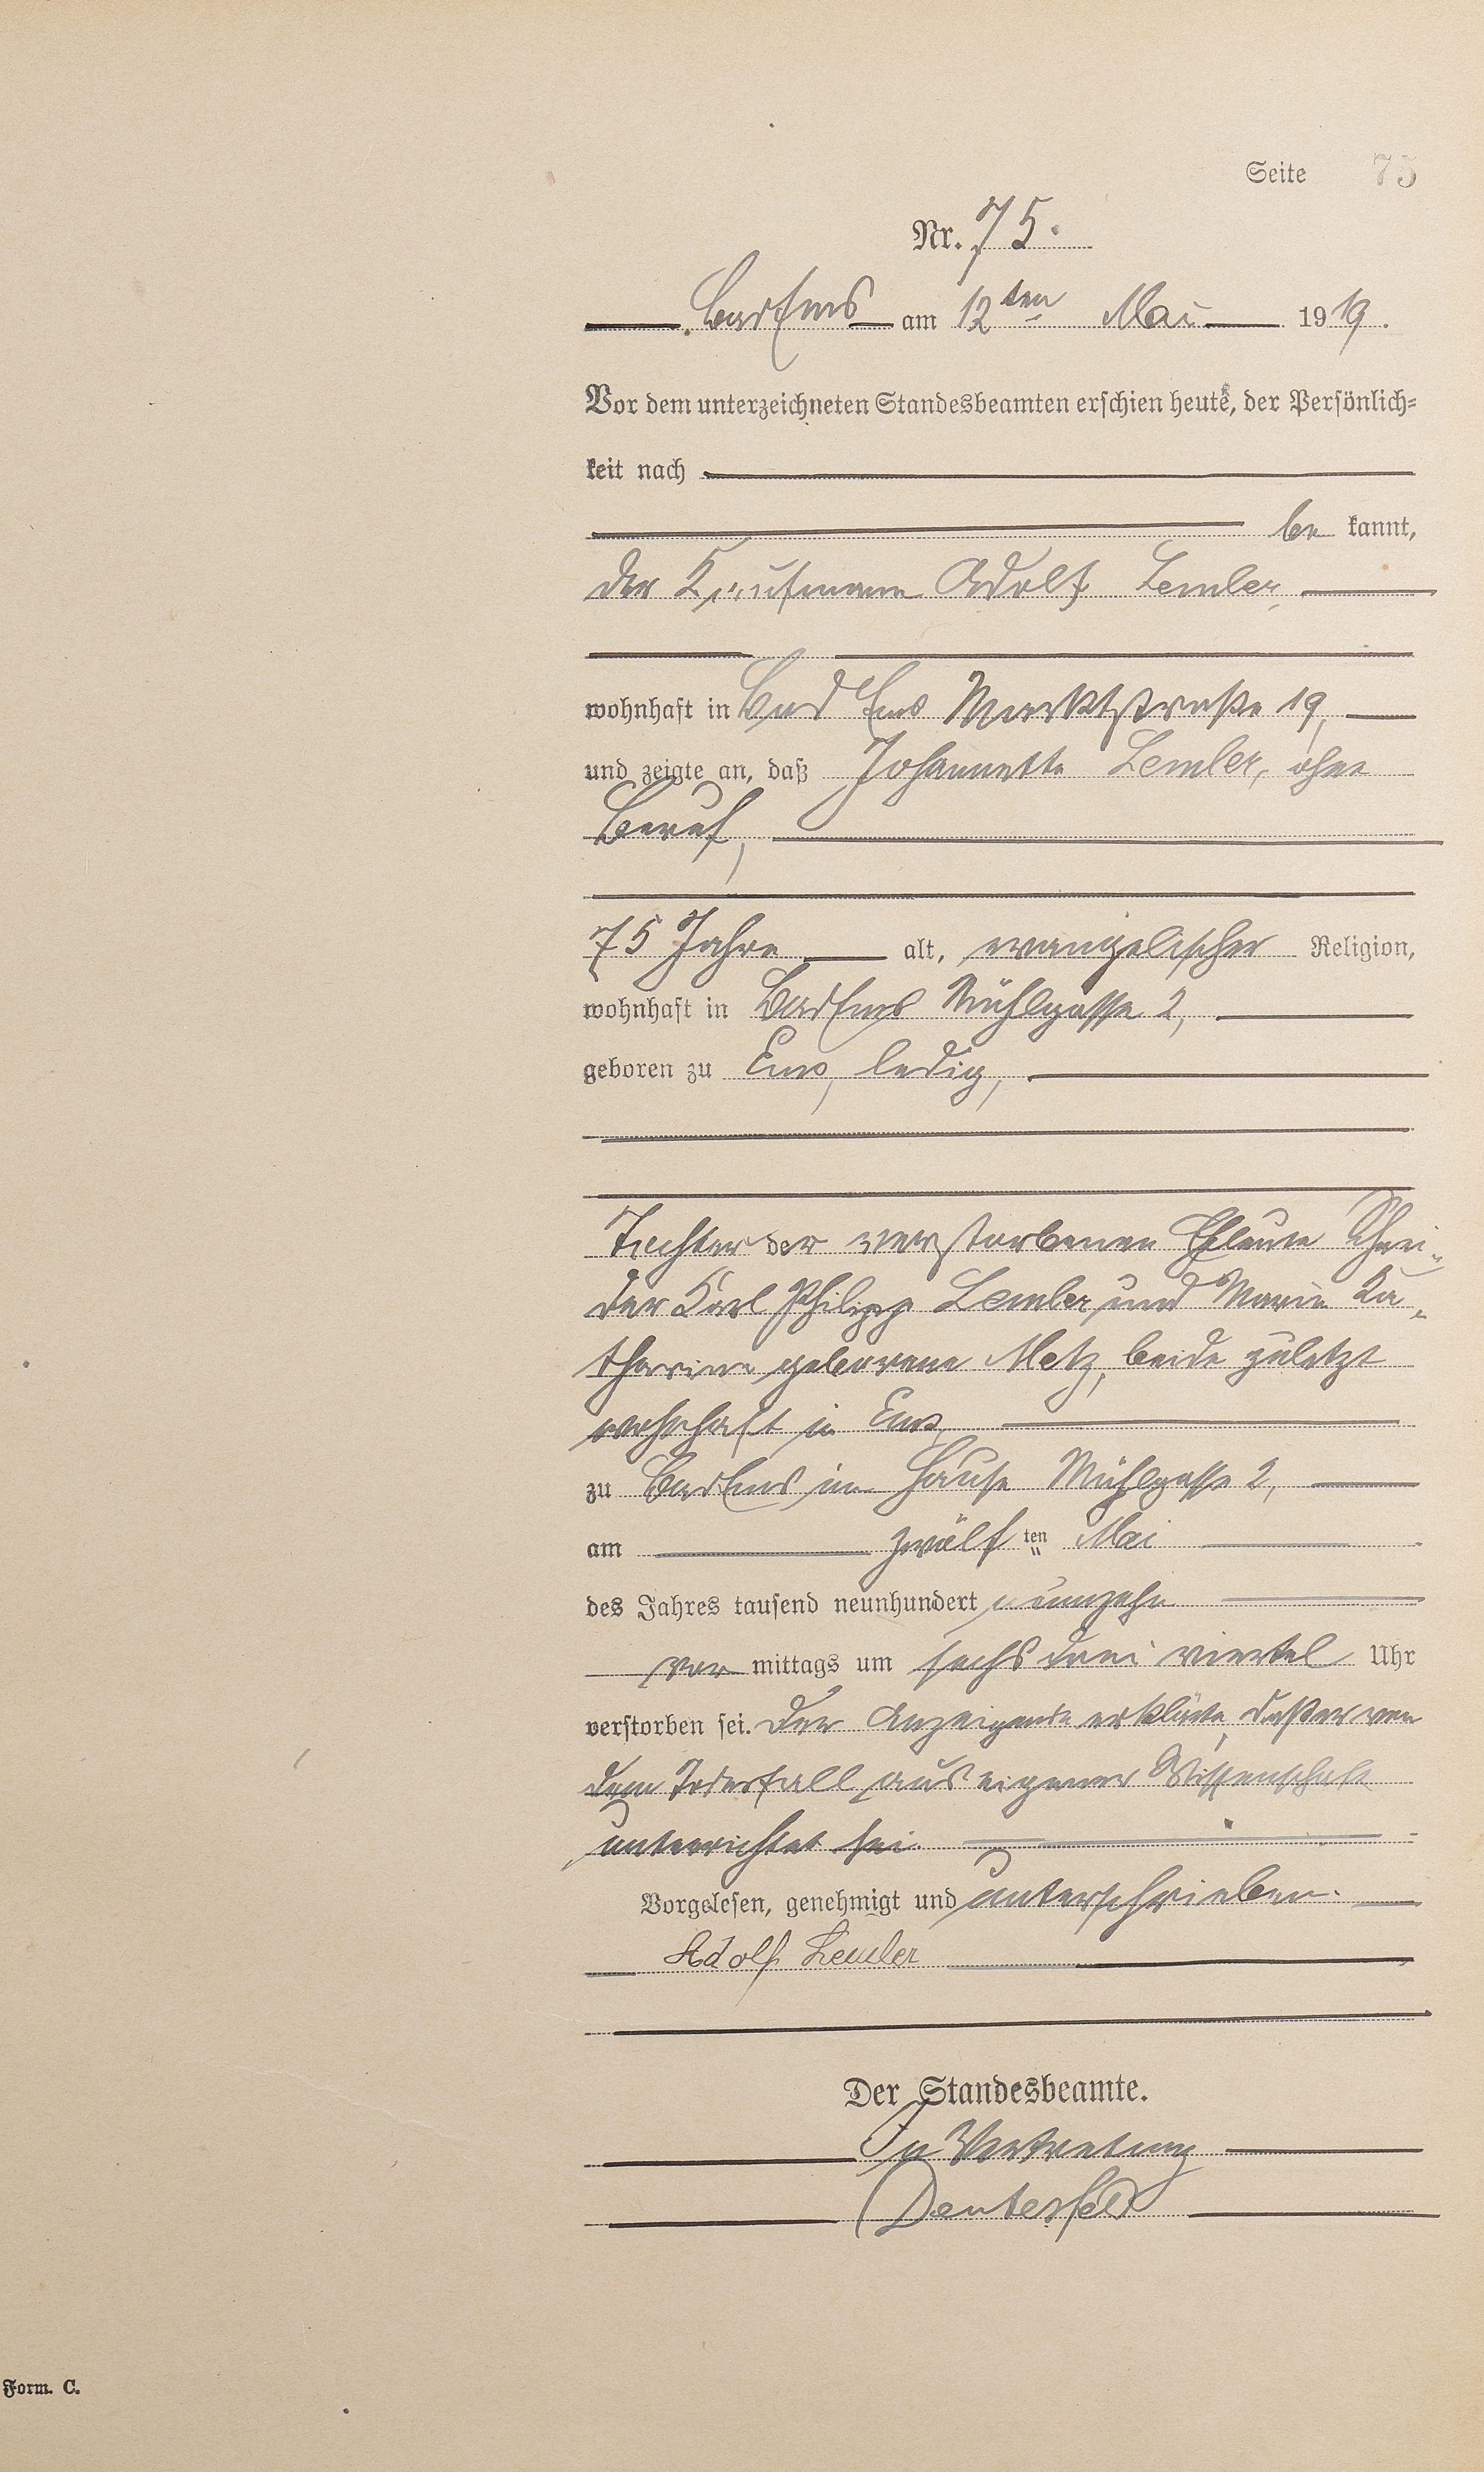 Seite 75
Nr. 75.
Bad Ems am 12ten Mai 1919.
Vor dem unterzeichneten Standesbeamten erschien heute, der Persönlich-
keit nach
be kannt,
der Kaufmann Adolf Lemler,
wohnhaft in Bad Ems Marktstraße 19,
und zeigte an, daß Johannette Lemler, ohne
Beruf,
75 Jahre alt, evangelischer Religion,
wohnhaft in Bad Ems Mühlgasse 2,
geboren zu Ems, ledig,
Tochter der verstorbenen Eheleute Schnei-
der Karl Philipp Lemler und Marie Ka-
tharine geborene Metz, beide zuletzt
wohnhaft in Ems,
zu Bad Ems im Hause Mühlgasse 2,
am zwölf ten Mai
des Jahres tausend neunhundert neunzehn
vor mittags um sechs drei viertel Uhr
verstorben sei. Der Anzeigende erklärte, daß er von
dem Todesfall aus eigener Wissenschaft
unterrichtet sei.
Vorgelesen, genehmigt und unterschrieben.
Adolf Lemler
Der Standesbeamte.
In Vertretung
Deutesfeld
Form. C.